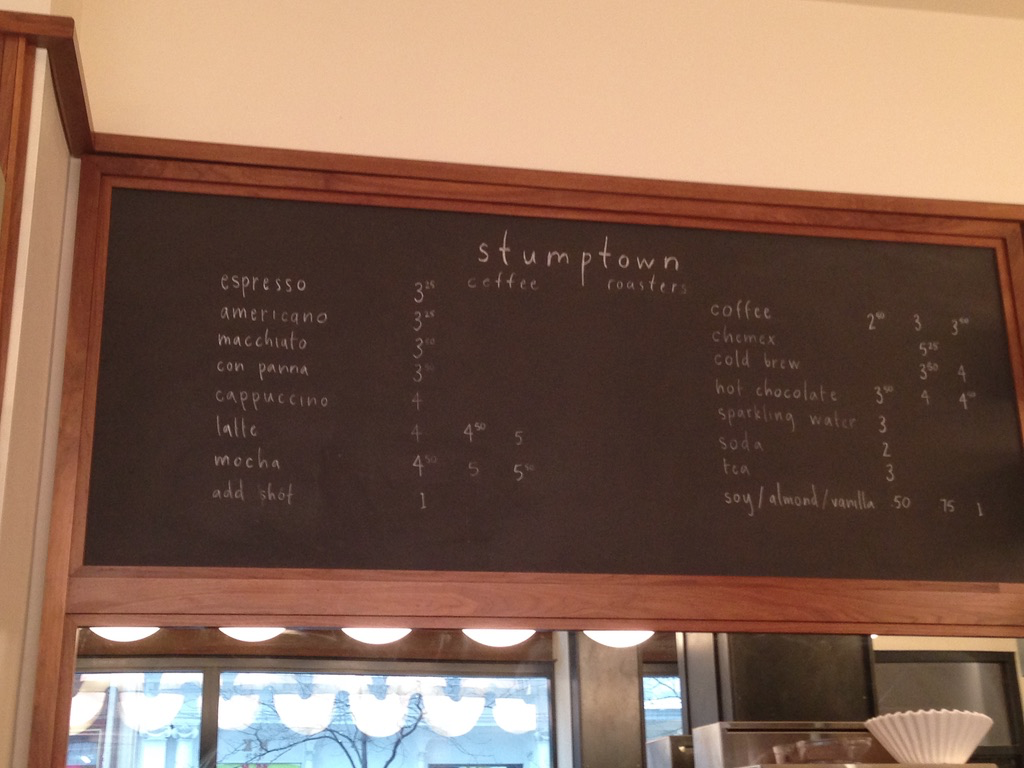 stumptown
coffee roasters
espresso 3²⁵
americano 3²⁵
macchiato 3⁵⁰
con panna 3⁵⁰
cappuccino 4
latte 4 4⁵⁰ 5
mocha 4⁵⁰ 5 5⁵⁰
add shot 1
coffee 2⁵⁰ 3 3⁵⁰
chemex 5²⁵
cold brew 3⁵⁰ 4
hot chocolate 3⁵⁰ 4 4⁵⁰
sparkling water 3
soda 2
tea 3
soy/almond/vanilla 50 75 1